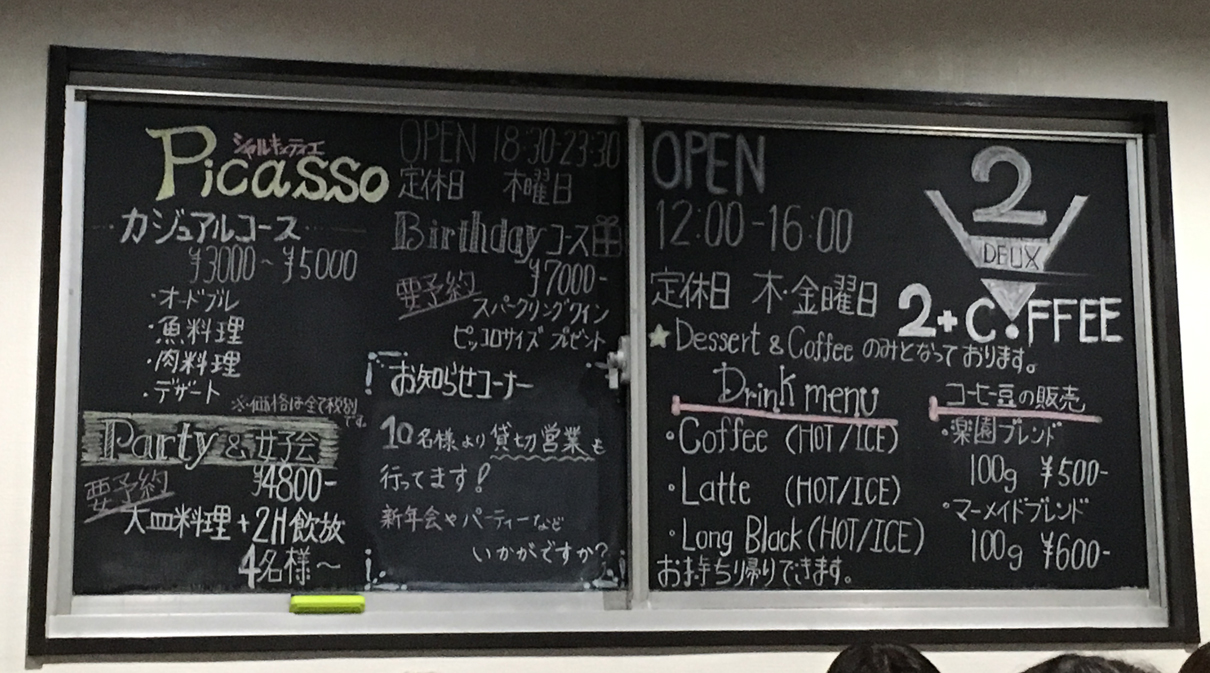 シャルキュティエ
Picasso
カジュアルコース
¥3000～¥5000
・オードブル
・魚料理
・肉料理
・デザート
※価格は全て税別です。
Party & 女子会
要予約
¥4800-
大皿料理+2H飲放
4名様～
OPEN 18:30-23:30
定休日 木曜日
Birthdayコース
¥7000-
要予約
スパークリングワイン
ピッコロサイズ プレゼント
お知らせコーナー
10名様より貸切営業も
行ってます!
新年会やパーティーなど
いかがですか?
OPEN
12:00-16:00
定休日 木・金曜日
2
DEUX
2+COFFEE
★Dessert & Coffee のみとなっております。
Drink menu
・Coffee (HOT/ICE)
・Latte (HOT/ICE)
・Long Black (HOT/ICE)
お持ち帰りできます。
コーヒー豆の販売
・楽園ブレンド
100g ¥500-
・マーメイドブレンド
100g ¥600-